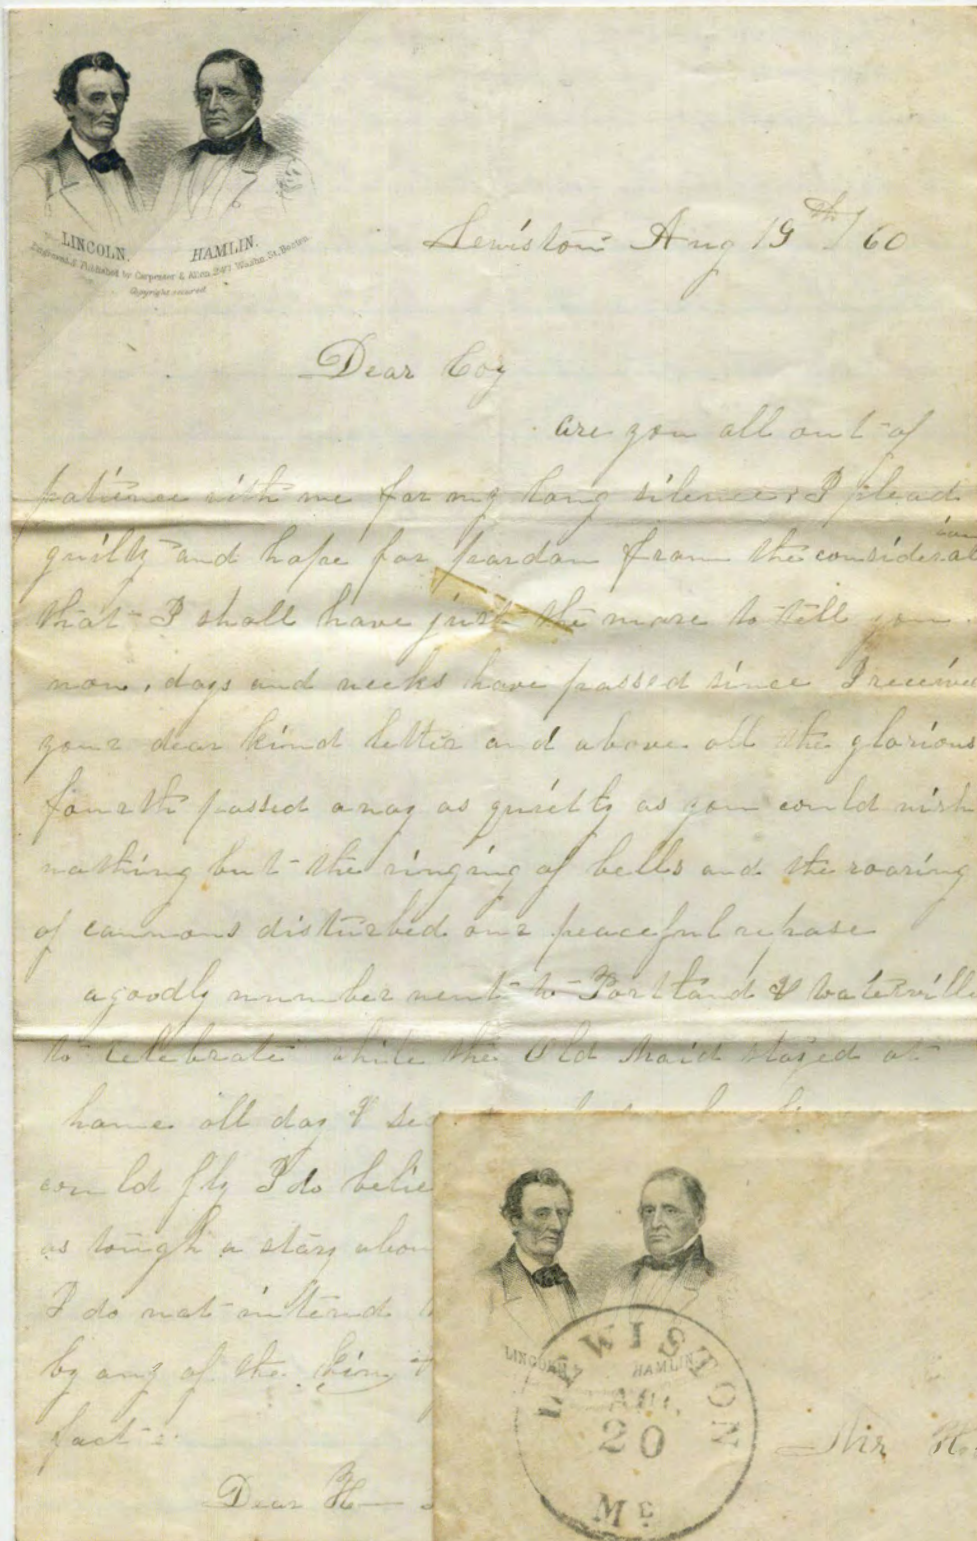 LINCOLN. HAMLIN.
Engraved & Published by Carpenter & Allen, 247 Washn. St. Boston
Copyright secured
Lewiston Aug 19th / 60
Dear Coz
are you all out of
patience with me for my long silence, I plead
guilty and hope for pardon from the considerat
ion
that I shall have just the more to tell you
now, days and weeks have passed since I receive
your dear kind letter and above all the glorious
fourth passed away as quietly as you could wish
nothing but the ringing of bells and the roaring
of cannons disturbed our peaceful repose
a goodly number went to Portland & Waterville
to celebrate while the Old Maid stayed at
home all day &
could fly I do belie
as tough a story abou
I do not intend
by any of the
fact
Dear H—
LINCOLN HAMLIN
LEWISTON
AUG.
20
ME